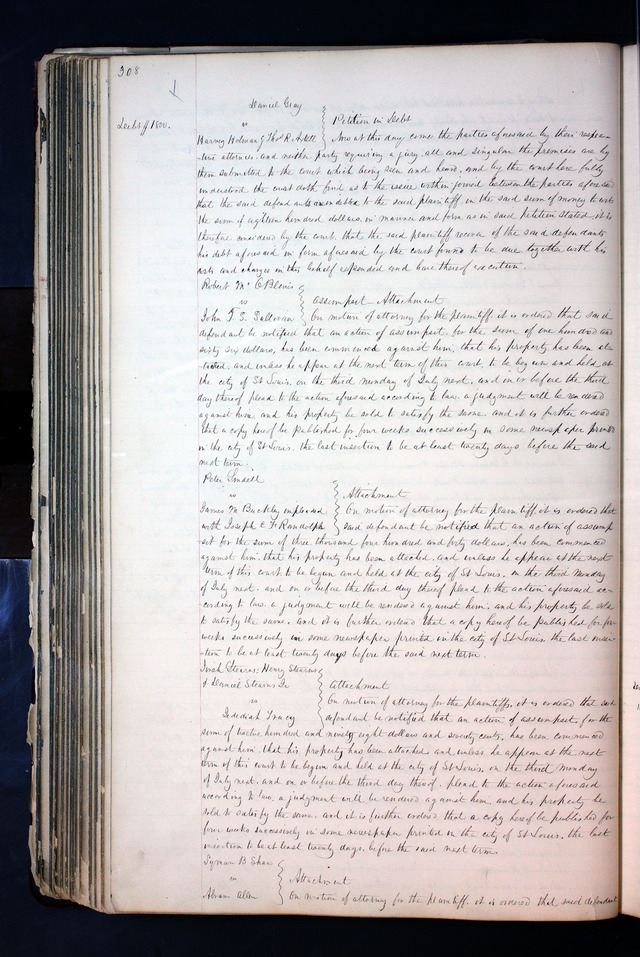 308
Daniel Gray
vs
Petition in Debt
Debt $1800.
Harvey Holman & Thos R.
Now at this day come the parties aforesaid by their respec-
-tive attornies, and neither party requiring a jury, all and singular the premises are by
them submitted to the court which being seen and heard, and by the court here fully
understood the court doth find as to the issue within joined between the parties aforesaid
that the said defendants are indebted to the said plaintiff in the said sum of money to wit
the sum of eighteen hundred dollars, in manner and form as in said petition stated, it is
therefore considered by the court, that the said plaintiff recover of the said defendants
his debt aforesaid in form aforesaid by the court found to be due together with his
costs and charges in this behalf expended and have thereof execution.
Robert Mc
vs
assumpsit Attachment
John T. S. Sullivan
On motion of attorney for the plaintiff, it is ordered that said
defendant be notified that an action of assumpsit, for the sum of one hundred and
sixty six dollars, has been commenced against him, that his property has been at-
-tached, and unless he appear at the next term of this court, to be begun and held at
the city of St Louis, on the third monday of July next, and on or before the third
day thereof plead to the action aforesaid according to law, a judgment will be rendered
against him, and his property be sold to satisfy the same, and it is further ordered
that a copy hereof be published for four weeks successively in some newspaper printed
in the city of St Louis, the last insertion to be at least twenty days before the said
next term.
Peter Lindell
vs
Attachment
James M Buckley impleaded
On motion of attorney for the plaintiff, it is ordered that
with Joseph C F Randolph
said defendant be notified that an action of assump
-sit for the sum of three thousand four hundred and forty dollars, has been commenced
against him, that his property has been attached, and unless he appear at the next
term of this court to be begun and held at the city of St Louis, on the third Monday
of July next, and on or before the third day thereof plead to the action aforesaid ac-
-cording to law, a judgment will be rendered against him, and his property be sold
to satisfy the same, and it is further ordered that a copy hereof be published for four
weeks successively in some newspaper printed in the city of St Louis the last inser-
-tion to be at least twenty days before the said next term.
Stearns, Henry Stearns
& Daniel Stearns Jr
Attachment
vs
On motion of attorney for the plaintiffs, it is ordered that said
Jedediah Tracy
defendant be notified that an action of assumpsit, for the
sum of twelve hundred and ninety eight dollars and seventy cents, has been commenced
against him, that his property has been attached and unless he appear at the next
term of this court to be begun and held at the city of St Louis, on the third monday
of July next, and on or before the third day thereof, plead to the action aforesaid
according to law, a judgment will be rendered against him, and his property be
sold to satisfy the same, and it is further ordered that a copy hereof be published for
four weeks successively in some newspaper printed in the city of St Louis, the last
insertion to be at least twenty days, before the said next term.
Lyman B Shaw
vs
Attachment
Abram Allen
On motion of attorney for the plaintiff, it is ordered that said defendant